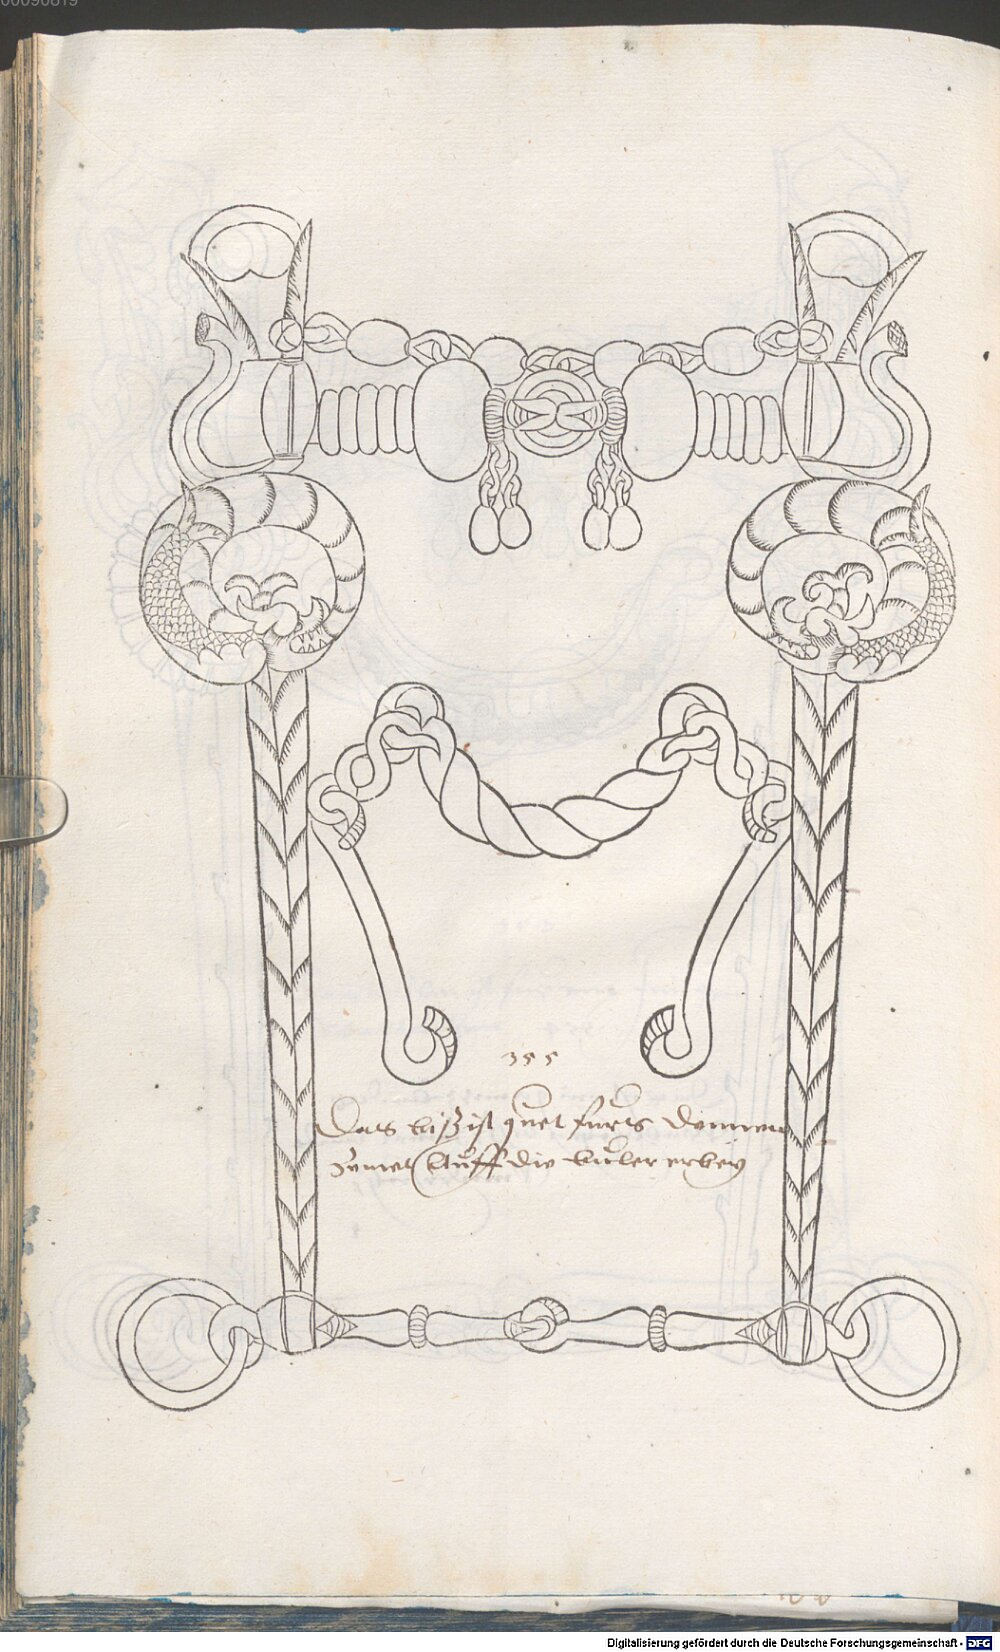 00090819
355
Das biß ist guet fürs Dennen
Zymet Auff die
Digitalisierung gefördert durch die Deutsche Forschungsgemeinschaft - DFG